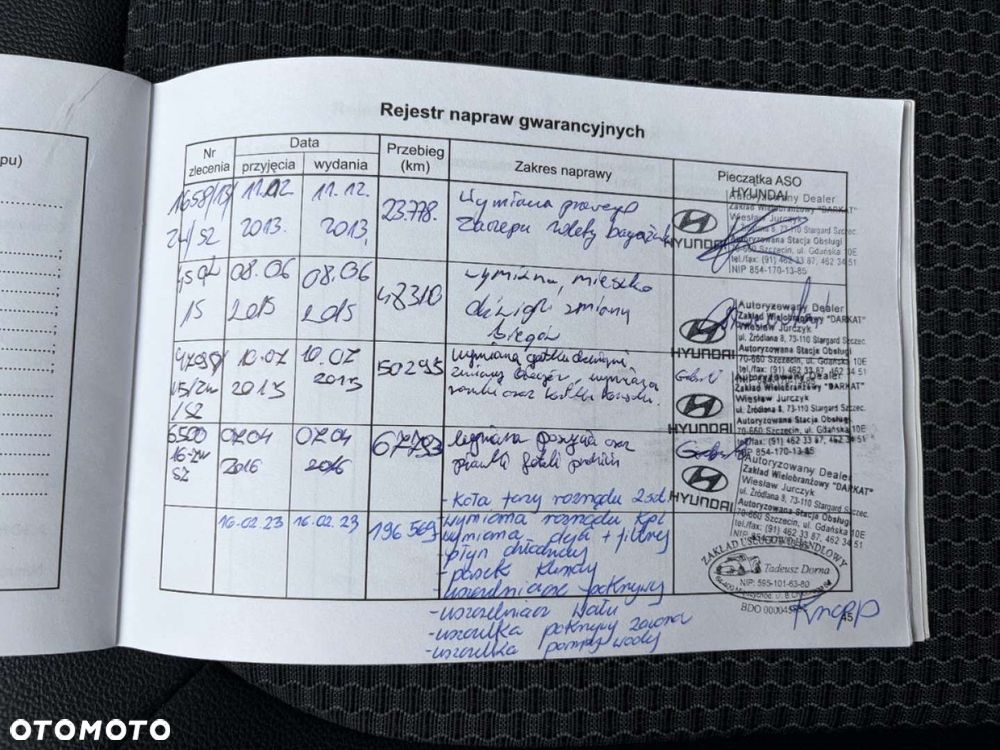 pu)
Rejestr napraw gwarancyjnych
Nr zlecenia
Data
przyjęcia
wydania
Przebieg (km)
Zakres naprawy
Pieczątka ASO HYUNDAI
1658/13/
24/SZ
11.12
2013.
11.12.
2013,
23.778.
Wymiana prawego
zaczepu rolety bagażnika
HYUNDAI
Autoryzowany Dealer
Zakład Wielobranżowy "DARKAT"
Wiesław Jurczyk
ul. Źródlana 8, 73-110 Stargard Szczec.
Autoryzowana Stacja Obsługi
70-660 Szczecin, ul. Gdańska 10E
tel./fax: (91) 462 33 87, 462 34 51
NIP 854-170-13-85
15
08.06
2015
08.06
2015
48310
wymiana, mieszka
dźwigni zmiany
biegów
HYUNDAI
Autoryzowany Dealer
Zakład Wielobranżowy "DARKAT"
Wiesław Jurczyk
ul. Źródlana 8, 73-110 Stargard Szczec.
Autoryzowana Stacja Obsługi
70-660 Szczecin, ul. Gdańska 10E
tel./fax: (91) 462 33 87, 462 34 51
/SZ
10.07
2015
10.07
2015
50295
wymiana gałki dźwigni
zmiany biegów, wymiana
HYUNDAI
Autoryzowany Dealer
Zakład Wielobranżowy "DARKAT"
Wiesław Jurczyk
ul. Źródlana 8, 73-110 Stargard Szczec.
Autoryzowana Stacja Obsługi
70-660 Szczecin, ul. Gdańska 10E
tel./fax: (91) 462 33 87, 462 34 51
NIP 854-170-13-85
6500
16-ZW
SZ
07.04
2016
07.04
2016
67793
wymiana poszycia oraz
pianki fotela
HYUNDAI
Autoryzowany Dealer
Zakład Wielobranżowy "DARKAT"
Wiesław Jurczyk
ul. Źródlana 8, 73-110 Stargard Szczec.
Autoryzowana Stacja Obsługi
70-660 Szczecin, ul. Gdańska 10E
tel./fax: (91) 462 33 87, 462 34 51
16.02.23
16.02.23
196 569
- Koła rozrządu 2szt.
- wymiana rozrządu kpl
- wymiana oleju + filtry
- płyn chłodniczy
- pasek klimy
- uszczelniacze pokrywy
- uszczelniacz wału
- uszczelka pokrywy zaworów
- uszczelka pompy wody
ZAKŁAD USŁUGOWO HANDLOWY
Tadeusz Dorna
NIP: 595-101-63-80
BDO 0000
45
OTOMOTO